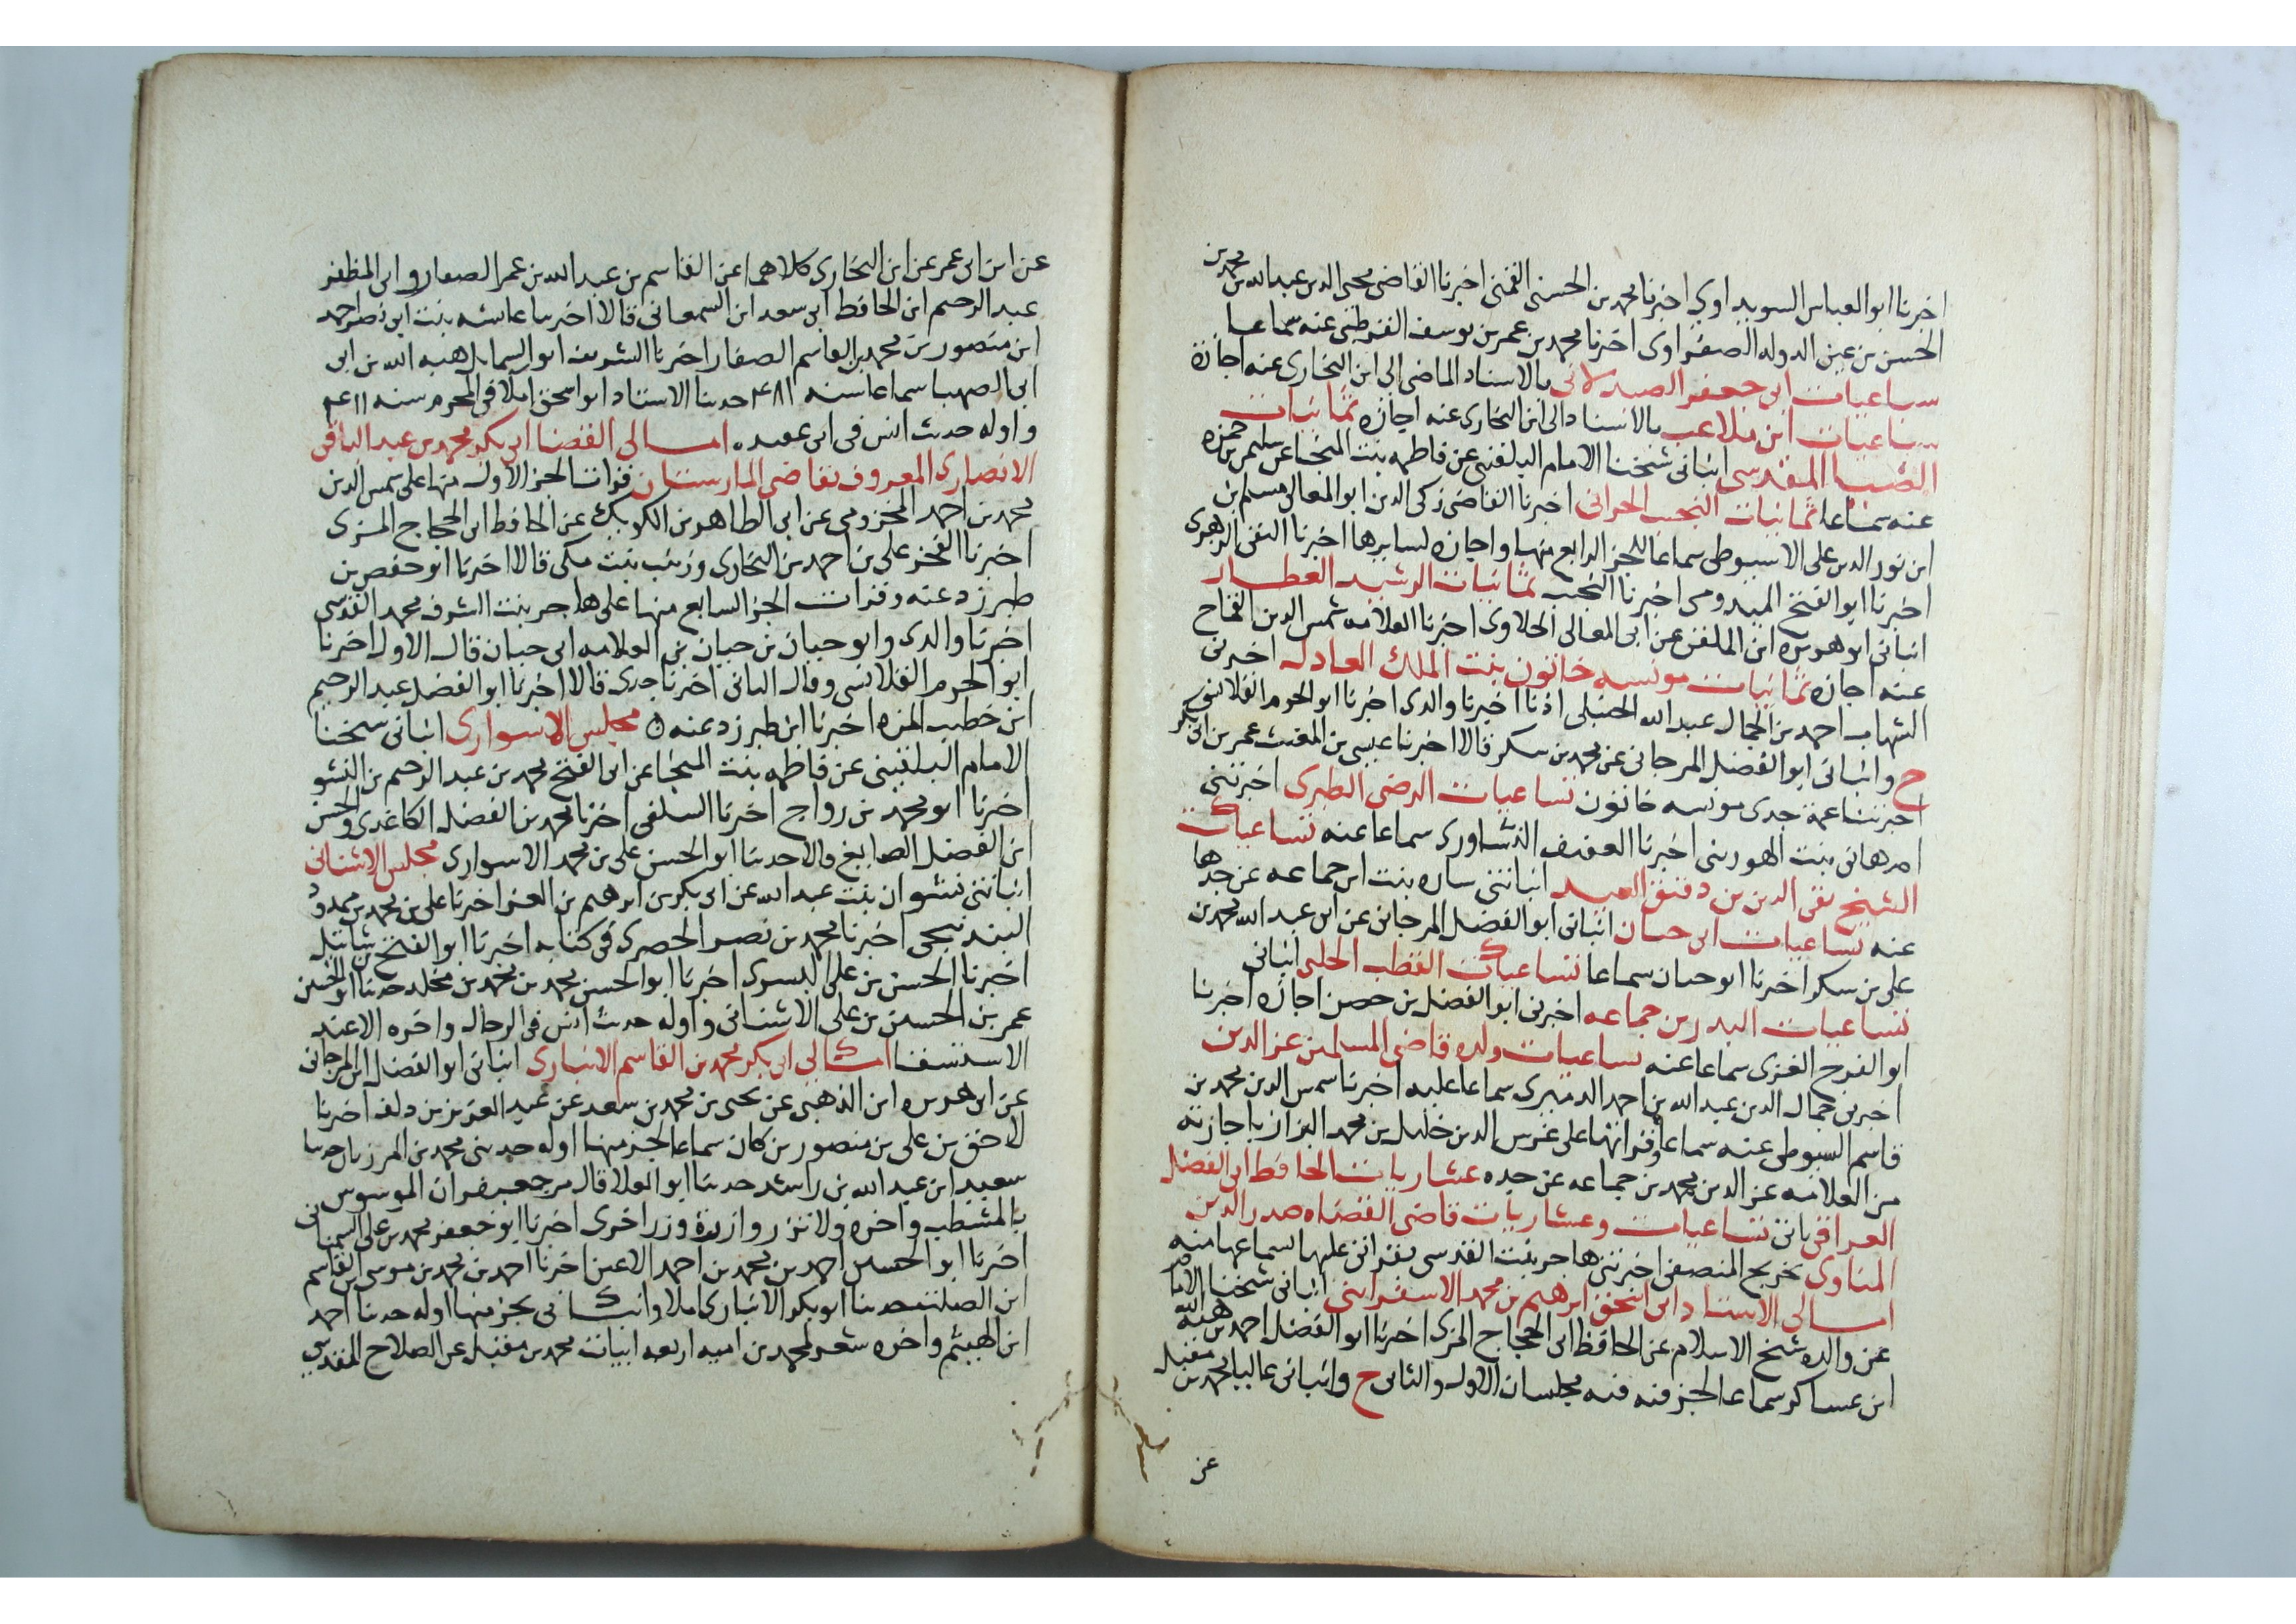 اخبرنا ابو العباس السويداوى اخبرنا محمد بن الحسن القمنى اخبرنا القاضى محيى الدين عبد الله بن محمد بن
الحسن بن عين الدوله الصفراوى اخبرنا محمد بن عمر بن يوسف القرطبى عنه سماعا
سباعيات ابى جعفر الصيدلانى بالاسناد الماضى الى ابن البخارى عنه اجازة
سباعيات ابن ملاعب بالاسناد الى ابن البخارى عنه اجازه ثمانيات
الضيا المقدسى انبانى شيخنا الامام البلقينى عن فاطمه بنت المنجا عن سليمن بن حمزه
عنه سماعا ثمانيات النجيب الحرانى اخبرنا القاضى زكى الدين ابو المعالى مسلم بن
ابن نور الدين على الاسيوطى سماعا للجز الرابع منها واجازه لسايرها اخبرنا التقى الدجوى
اخبرنا ابو الفتح الميدومى اخبرنا النجيب ثمانيات الرشيد العطار
انبانى ابو هريره ابن الملقن عن ابى المعالى الحلاوى اخبرنا العلامه شمس الدين القماح
عنه اجازه ثمانيات مونسه خاتون بنت الملك العادل اخبرنى
الشهاب احمد بن الجمال عبد الله الحنبلى اذنا اخبرنا والدى اخبرنا ابو الحرم القلانسى
ح وانبانى ابو الفضل المرجانى عن محمد بن سكر قالا اخبرنا عيسى بن المغيث عمر بن ابى بكر
اخبرتنا عمة جدى مونسه خاتون تساعيات الرضى الطبرى اخبرتنى
ام هانى بنت الهورينى اخبرنا العفيف النشاورى سماعا عنه تساعيات
الشيخ تقى الدين بن دقيق العيد انباتنى ساره بنت ابن جماعه عن جدها
عنه تساعيات ابى حيان انبانى ابو الفضل المرجانى عن ابى عبد الله محمد بن
على بن سكر اخبرنا ابو حيان سماعا تساعيات القطب الحلبى انبانى
تساعيات البدر بن جماعه اخبرنى ابو الفضل بن حصن اجازه اخبرنا
ابو الفرج الغزى سماعا عنه تساعيات ولده قاضى المسلمين عز الدين
اخبرنى جمال الدين عبد الله بن احمد الدميرى سماعا عليه اخبرنا شمس الدين محمد بن
قاسم السيوطى عنه سماعا وقراتها على غرس الدين خليل بن محمد البزاز باجازته
من العلامه عز الدين محمد بن جماعه عن جده عشاريات الحافظ ابى الفضل
العراقى تاتى تساعيات وعشاريات قاضى القضاه صدر الدين
المناوى تخريج المنصفى اخبرتنى هاجر بنت القدسى بقراتى عليها بسماعها منه
امالى الاستاد ابى اسحق ابرهيم بن محمد الاسفراينى انبانى شيخنا الامام
عن والده شيخ الاسلام عن الحافظ ابى الحجاج المزى اخبرنا ابو الفضل احمد بن هبه الله
ابن عساكر سماعا لجز منه فيه مجلسان الاول والثانى ح وانبانى عاليا محمد بن مقبل
عن
عن ابن ابى عمر عن ابن البخارى كلاهما عن القاسم بن عبد الله بن عمر الصفار وابى المظفر
عبد الرحيم ابن الحافظ ابى سعد ابن السمعانى قالا اخبرتنا عائشه بنت ابى نصر احمد
ابن منصور بن محمد بن القاسم الصفار اخبرنا الشريف ابو السمايل هبه الله بن ابى
ابى الصهبا سماعا سنه ٤٨١ حدثنا الاستاد ابو اسحق املا فى المحرم سنه ٤١١
واوله حديث انس فى ابى عمير امالى القضا ابى بكر محمد بن عبد الباقى
الانصارى المعروف بقاضى المارستان قرات الجز الاول منها على شمس الدين
محمد بن احمد المخزومى عن ابى الطاهر بن الكويك عن الحافظ ابى الحجاج المزى
اخبرنا الفخر على بن احمد بن البخارى وزينب بنت مكى قالا اخبرنا ابو حفص بن
طبرزد عنه وقرات الجز السابع منها على هاجر بنت الشرف محمد القدسى
اخبرنا والدى وابو حيان بن حيان بن العلامه ابى حيان قال الاول اخبرنا
ابو الحرم القلانسى وقال الثانى اخبرنا جدى قالا اخبرنا ابو الفضل عبد الرحيم
ابن خطيب المزه اخبرنا ابن طبرزد عنه مجلس الاسوارى انبانى شيخنا
الامام البلقينى عن فاطمه بنت المنجا عن ابى الفتح محمد بن عبد الرحيم بن النشو
اخبرنا ابو محمد بن رواج اخبرنا السلفى اخبرنا محمد بن الفضل الكاغدى والحسن
ابن الفضل الصايغ قالا حدثنا ابو الحسن على بن محمد الاسوارى مجلس الاشنانى
انباتنى نشوان بنت عبد الله عن ابى بكر بن ابرهيم بن العز اخبرنا على بن محمد بن ممدود
البندنيجى اخبرنا محمد بن نصر الحصرى فى كتابه اخبرنا ابو الفتح بن شاتيل
اخبرنا الحسن بن على البسرى اخبرنا ابو الحسن محمد بن محمد بن مخلد حدثنا ابو الحسن
عمر بن الحسن بن على الاشنانى واوله حديث انس فى الرجال واخره الا عند
الاستسقا امالى ابى بكر محمد بن القاسم الانبارى انبانى ابو الفضل ابن المرجانى
عن ابى هريره ابن الذهبى عن يحيى بن محمد بن سعد عن عبد العزيز بن دلف اخبرنا
لاحق بن على بن منصور بن كان سماعا لجز منها اوله حدثنى محمد بن المرزبان حدثنا
سعيد ابن عبد الله بن راشد حدثنا ابو العلا قال مر جعيفران الموسوس
بالمشطب واخره ولا تزر وازرة وزر اخرى اخبرنا ابو جعفر محمد بن على السمنانى
اخبرنا ابو الحسين احمد بن محمد بن احمد الاعين اخبرنا احمد بن محمد بن موسى بن القاسم
ابن الصلت حدثنا ابو بكر الانبارى املا وانبانى بجز منها اوله حدثنا احمد
ابن الهيثم واخره شعر لمحمد بن اميه اربعه ابيات محمد بن مقبل عن الصلاح المقدسى